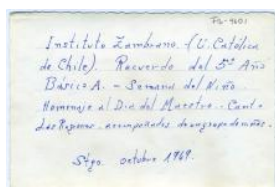 Fb-9601
Instituto Zambrano. (U. Católica
de Chile). Recuerdo del 5º Año
Básico A. - Semana del Niño.
Homenaje al Dia del Maestro. Canto
Las Regiones, acompañados de un grupo de niños.
Stgo. octubre 1969.